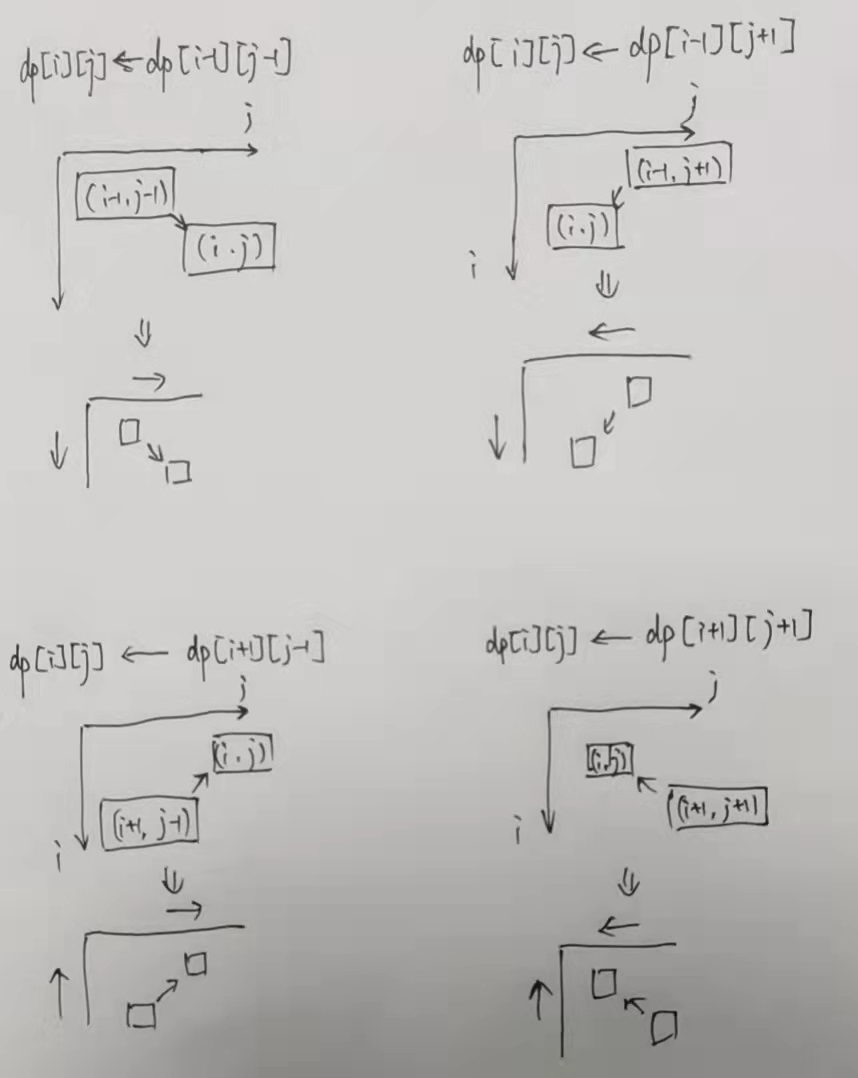 dp[i][j]←dp[i-1][j-1]
j
(i-1,j-1)
(i.j)
dp[i][j]←dp[i-1][j+1]
j
(i-1,j+1)
(i.j)
i
dp[i][j]←dp[i+1][j-1]
j
(i.j)
(i+1,j-1)
i
dp[i][j]←dp[i+1][j+1]
j
(i.j)
((i+1,j+1)
i